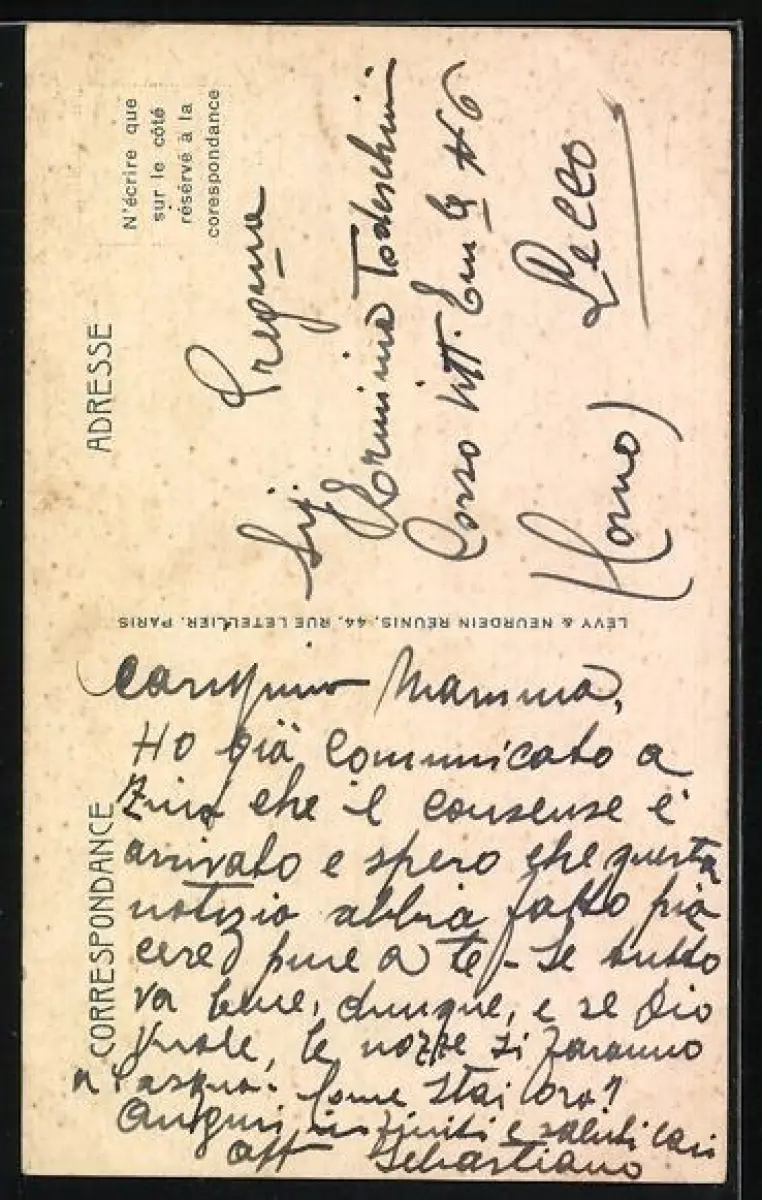 CORRESPONDANCE
Carissima Mamma,
Ho già comunicato a
Zina che il consense è
arrivato e spero che questa
notizia abbia fatto pia
cere pure a te - Se tutto
va bene, dunque, e se Dio
vuole, le nozze si faranno
a Pasqua. Come stai ora?
Auguri infiniti e saluti cari
aff Sebastiano
LÉVY & NEURDEIN RÉUNIS, 44, RUE LETELLIER, PARIS
ADRESSE
N'écrire que
sur le côté
résérvé à la
corespondance
Pregma
Sig
Erminia Todeschini
Corso Vitt. Em. 46
Lecco
(Como)